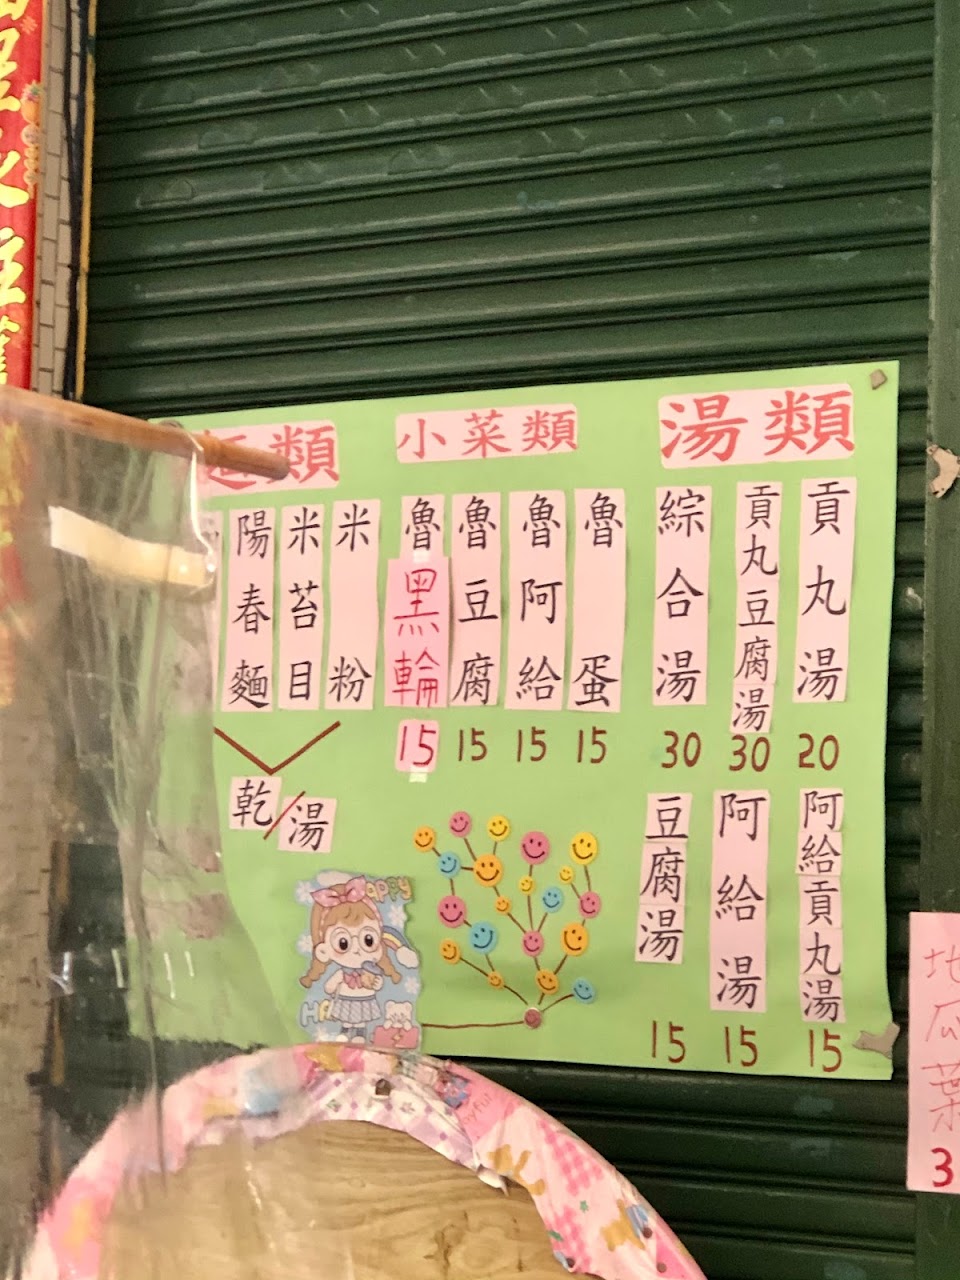 湯類
貢丸湯
20
貢丸豆腐湯
30
綜合湯
30
阿給貢丸湯
15
阿給湯
15
豆腐湯
15
小菜類
魯蛋
15
魯阿給
15
魯豆腐
15
魯黑輪
15
麵類
米粉
米苔目
陽春麵
乾/湯
HAPPY
地瓜葉
3